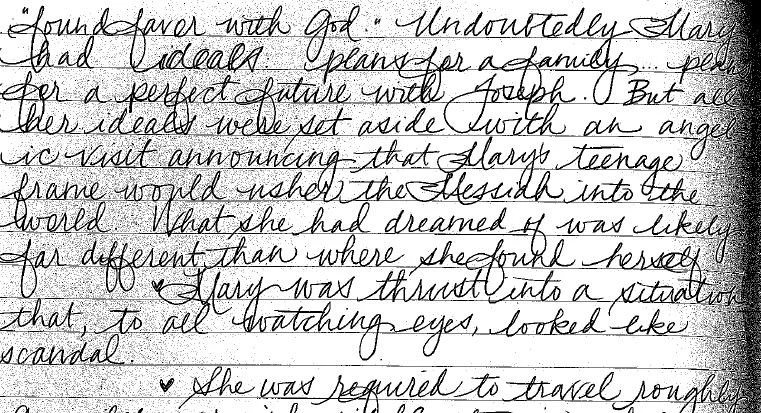 "found favor with God." Undoubtedly Mary
had ideals: plans for a family... plans
for a perfect future with Joseph. But all
her ideals were set aside with an angel
ic visit announcing that Mary's teenage
frame would usher the Messiah into the
world. What she had dreamed of was likely
far different than where she found herself
♥ Mary was thrust into a situation
that, to all watching eyes, looked like
scandal.
♥ She was required to travel roughly